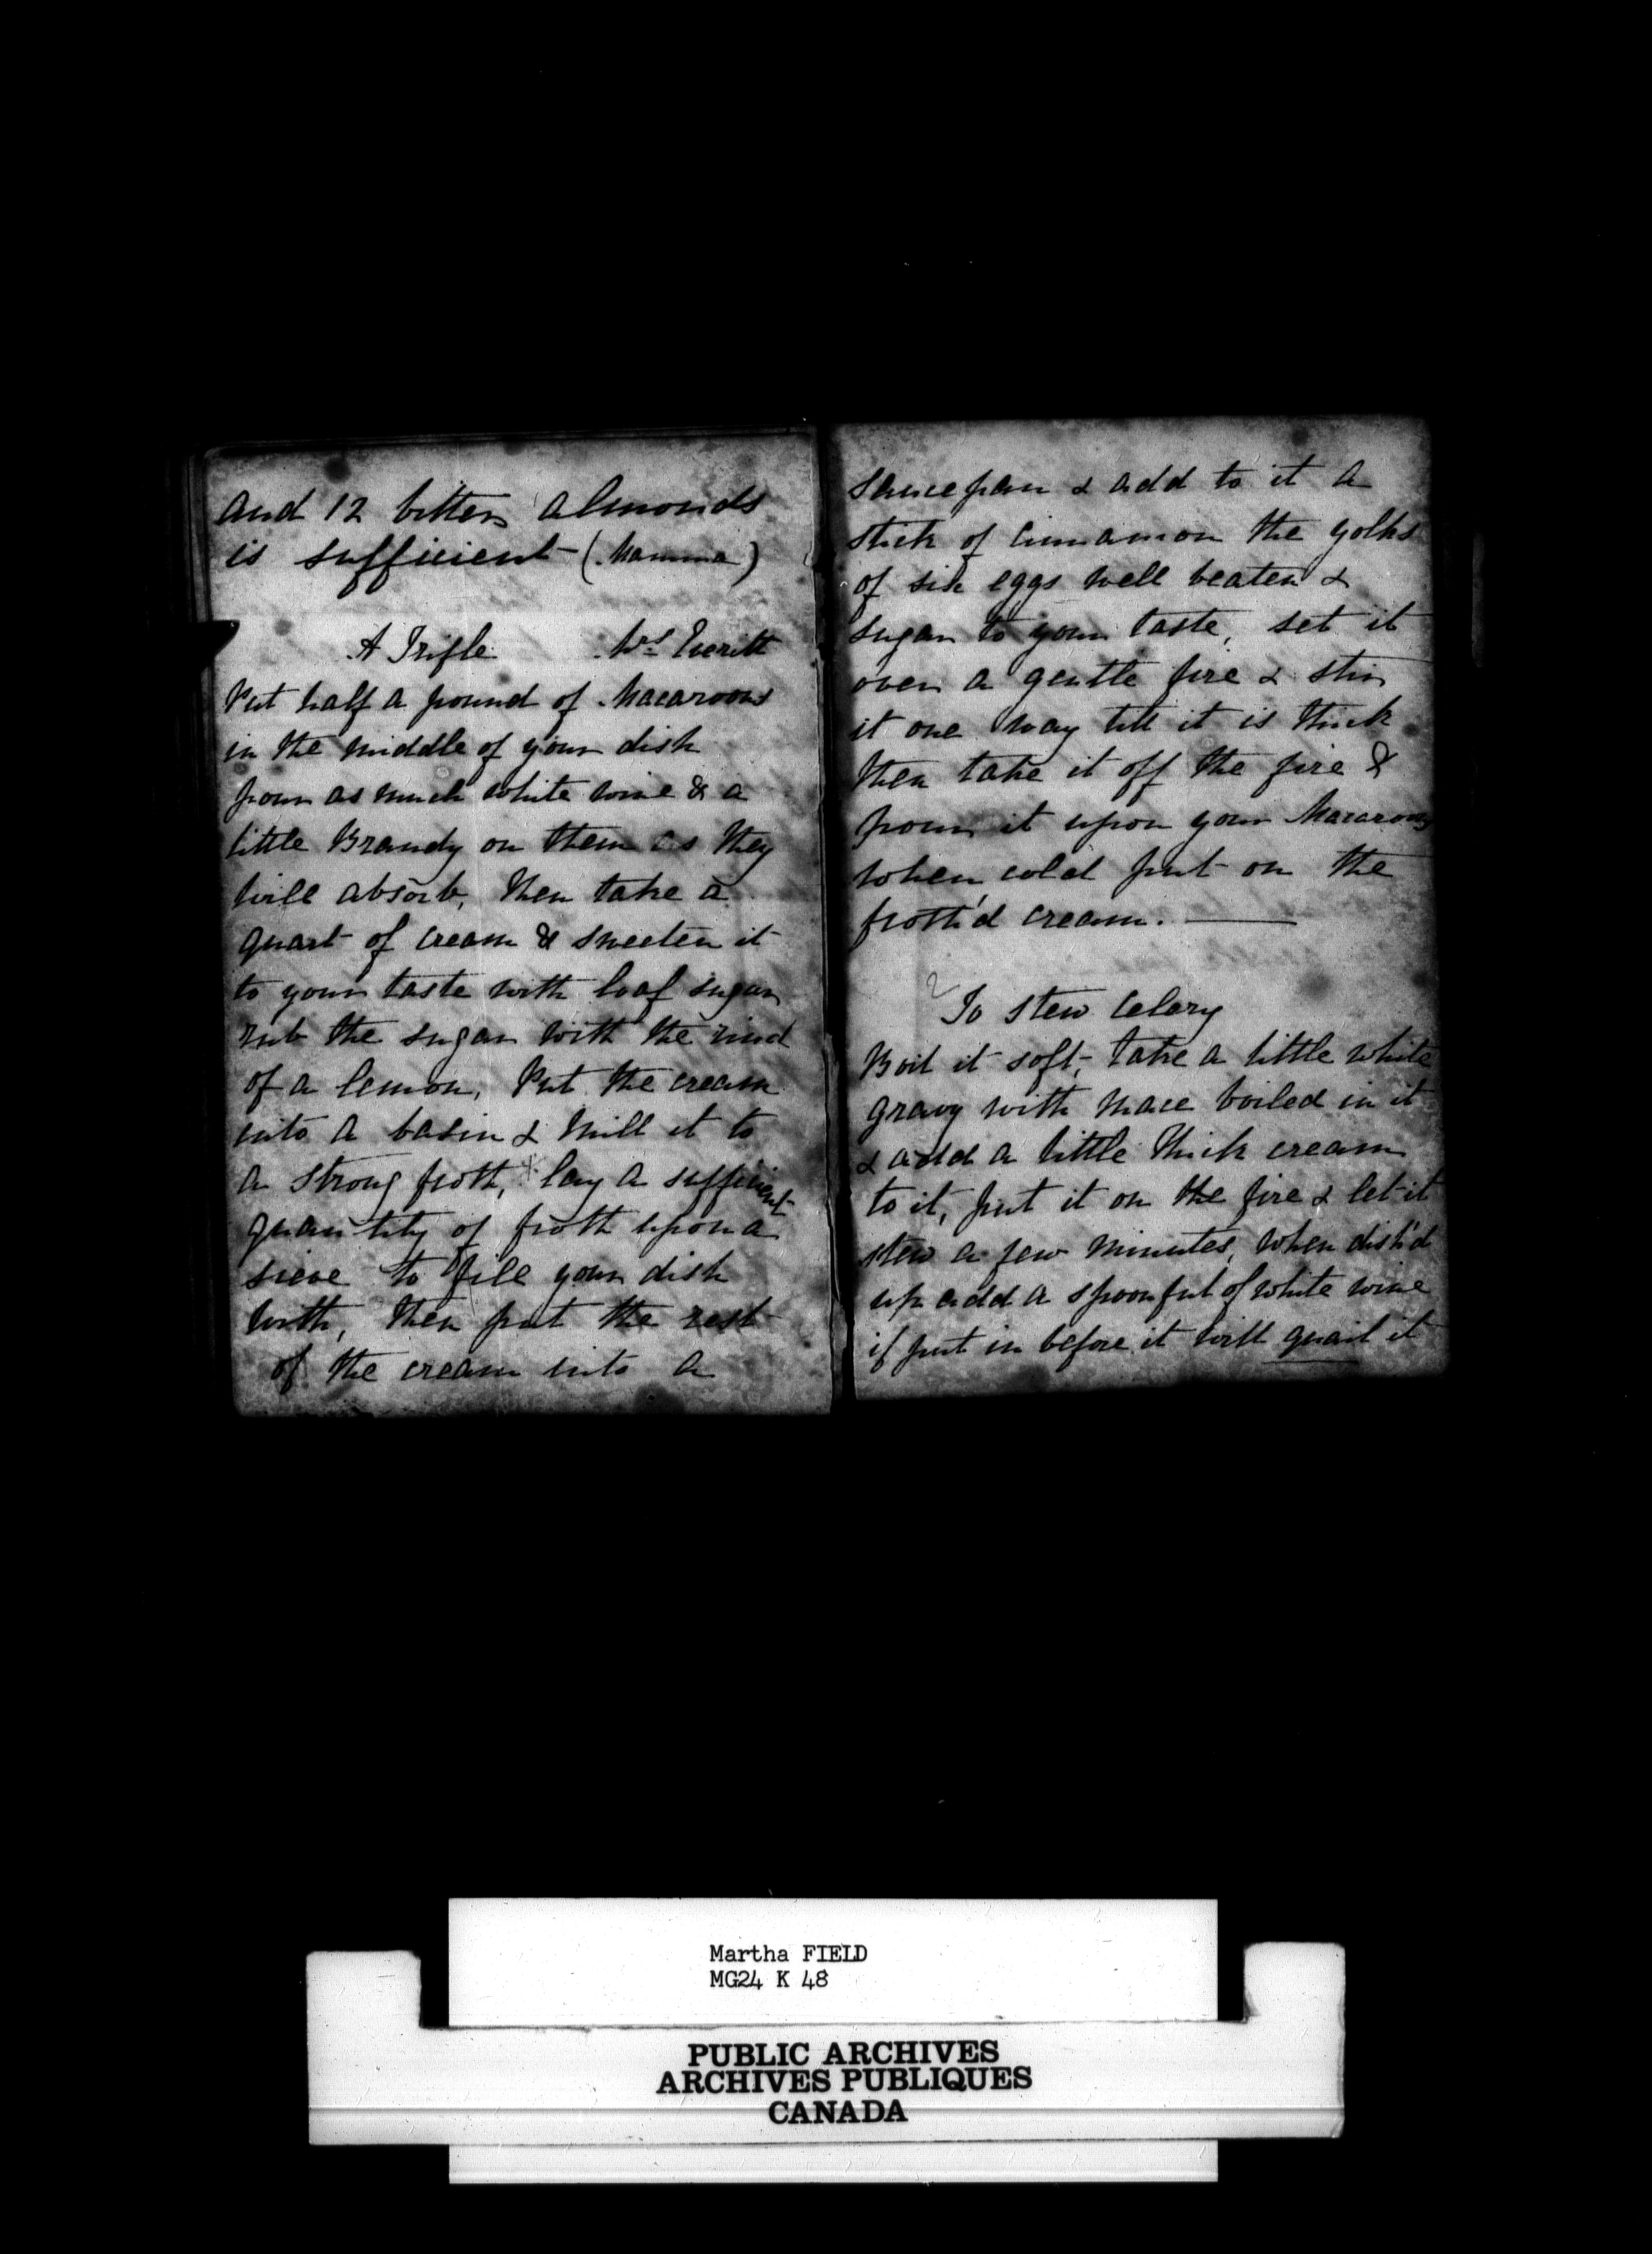 and 12 bitter almonds
is sufficient - (Mamma)
A Trifle Mrs Everitt
Put half a pound of Macaroons
in the middle of your dish
pour as much white wine & a
little Brandy on them as they
will absorb, then take a
quart of cream & sweeten it
to your taste with loaf sugar
rub the sugar with the rind
of a lemon, Put the cream
into a basin & mill it to
a strong froth, lay a sufficient
quantity of froth upon a
sieve to fill your dish
with, then put the rest
of the cream into a
saucepan & add to it a
stick of cinnamon the yolks
of six eggs well beaten &
sugar to your taste, set it
over a gentle fire & stir
it one way till it is thick
then take it off the fire &
pour it upon your Macaroons
when cold put on the
froth'd cream.
To stew Celery
Boil it soft, take a little white
gravy with mace boiled in it
& add a little thick cream
to it, put it on the fire & let it
stew a few minutes, when dish'd
up add a spoonful of white wine
if put in before it will quail it
Martha FIELD
MG24 K 48
PUBLIC ARCHIVES
ARCHIVES PUBLIQUES
CANADA